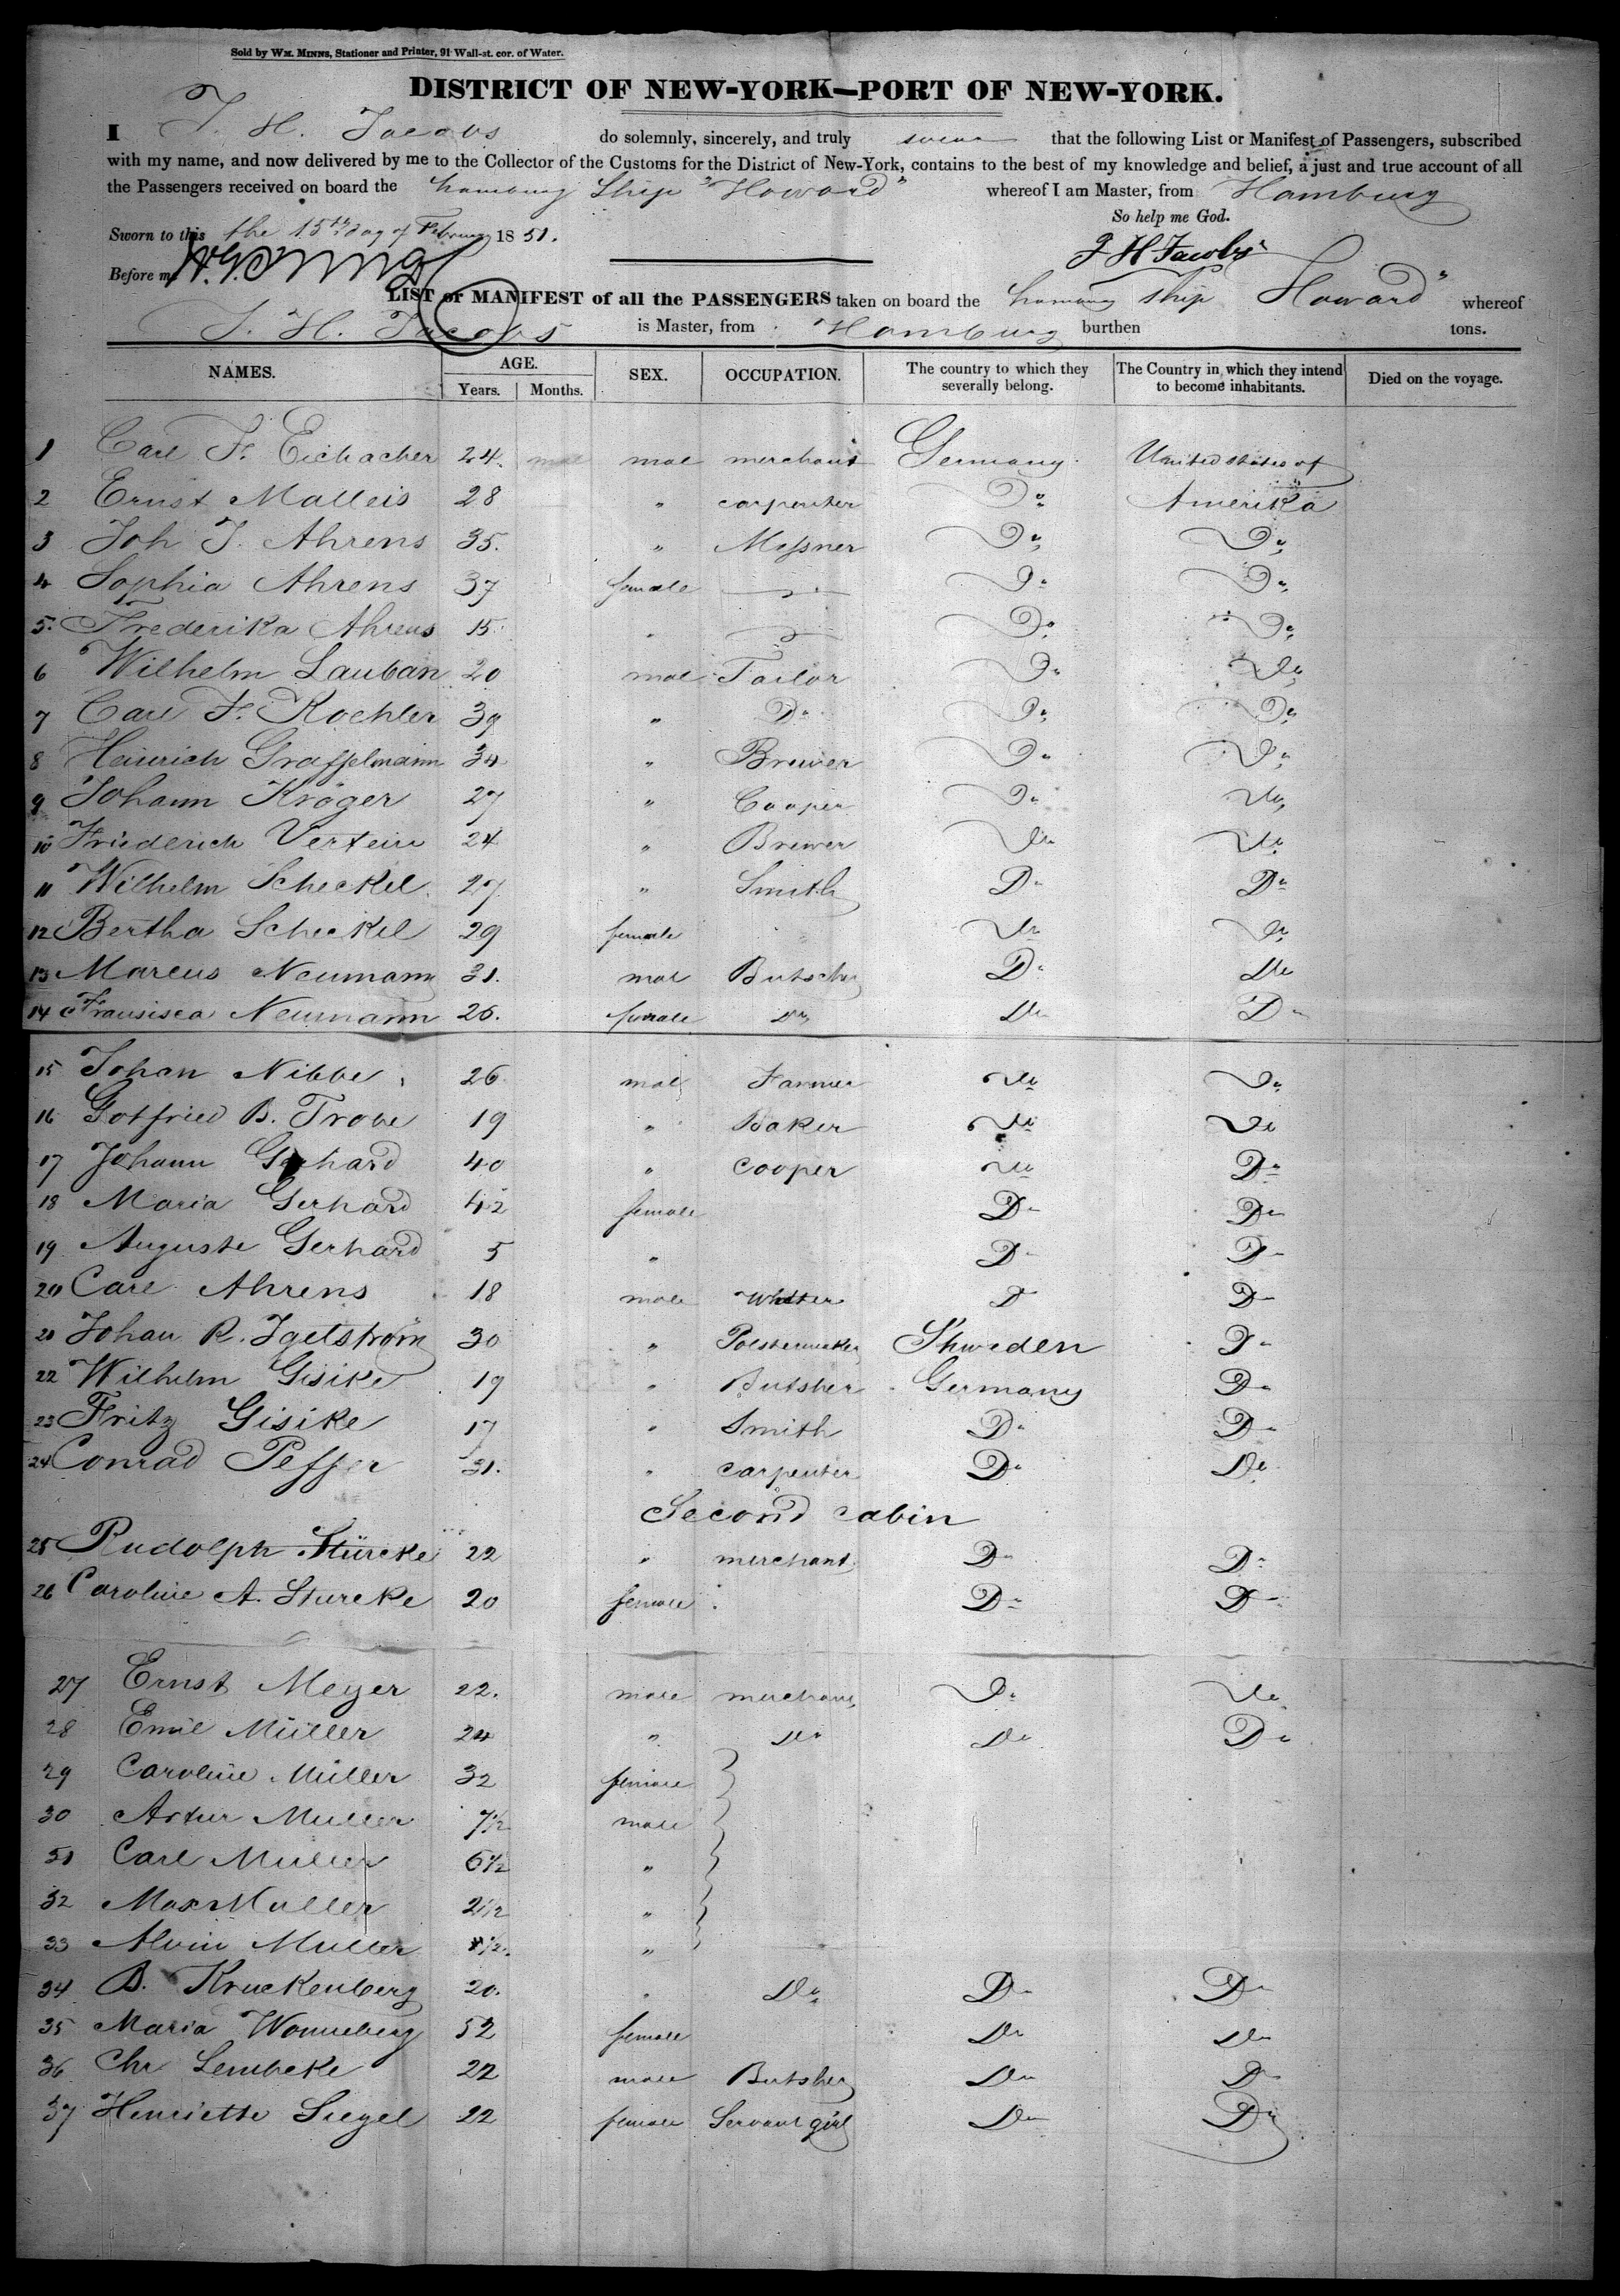 Sold by WM. MINNS, Stationer and Printer, 91 Wall-st. cor. of Water.
DISTRICT OF NEW-YORK—PORT OF NEW-YORK.
I T. H. Jacobs do solemnly, sincerely, and truly swear that the following List or Manifest of Passengers, subscribed
with my name, and now delivered by me to the Collector of the Customs for the District of New-York, contains to the best of my knowledge and belief, a just and true account of all
the Passengers received on board the hamburg Ship "Howard" whereof I am Master, from Hamburg
So help me God.
Sworn to this the 15th day of February 1851.
J H Jacobs
Before me
LIST or MANIFEST of all the PASSENGERS taken on board the hamburg ship Howard" whereof
T. H. Jacobs is Master, from Hamburg burthen tons.
NAMES. AGE. Years. Months. SEX. OCCUPATION. The country to which they severally belong. The Country in which they intend to become inhabitants. Died on the voyage.
1 Carl F. Eichacher 24. mal merchant Germany United states of
2 Ernst Malleis 28 " carpenter Do Amerika
3 Joh J. Ahrens 35. " Messner Do Do
4 Sophia Ahrens 37 female — Do Do
5. Frederika Ahrens 15. " — Do Do
6 Wilhelm Lauban 20 mal Tailor Do Do
7 Carl F. Koehler 39 " Do Do Do
8 Heinrich Grasselmann 34 " Brewer Do Do
9 Johann Kröger 27 " Cooper Do Do
10 Friederich Vertein 24 " Brewer Do Do
11 Wilhelm Scheckel 27 " Smith Do Do
12 Bertha Scheckel 29 female Do Do
13 Marcus Neumann 31. mal Butscher Do Do
14 Fransisca Neumann 26. female Do Do Do
15 Johan Nibbe 26 mal Farmer Do Do
16 Gotfried B. Trobe 19 " Baker Do Do
17 Johann Gerhard 40 " cooper Do Do
18 Maria Gerhard 42 female Do Do
19 Auguste Gerhard 5 " Do Do
20 Carl Ahrens 18 male Do Do
21 Johan R. Igelstrom 30 " Polstermaker Shweden Do
22 Wilhelm Gisike 19 " Butsher Germany Do
23 Fritz Gisike 17 " Smith Do Do
24 Conrad Peffer 31. " carpenter Do Do
Second cabin
25 Rudolph Stürcke 22 " merchant Do Do
26 Caroline A. Sturcke 20 female Do Do
27 Ernst Meyer 22. male merchant Do Do
28 Emil Müller 24 " Do Do Do
29 Caroline Müller 32 female
30 Artur Muller 7 1/2 male
31 Carl Muller 6 1/2 "
32 Max Muller 2 1/2 "
33 Alvin Muller 1/2. "
34 B. Kruckenberg 20. " Do Do Do
35 Maria Wonneberg 52 female Do Do
36 Chr Lembcke 22 male Butsher Do Do
37 Henriette Siegel 22 female Servant girl Do Do